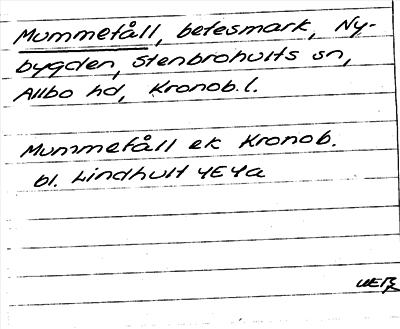 Mummetåll, betesmark, Ny-
bygden, Stenbrohults sn,
Allbo hd, Kronob. l.
Mummetåll ek Kronob.
bl. Lindhult 4E4a